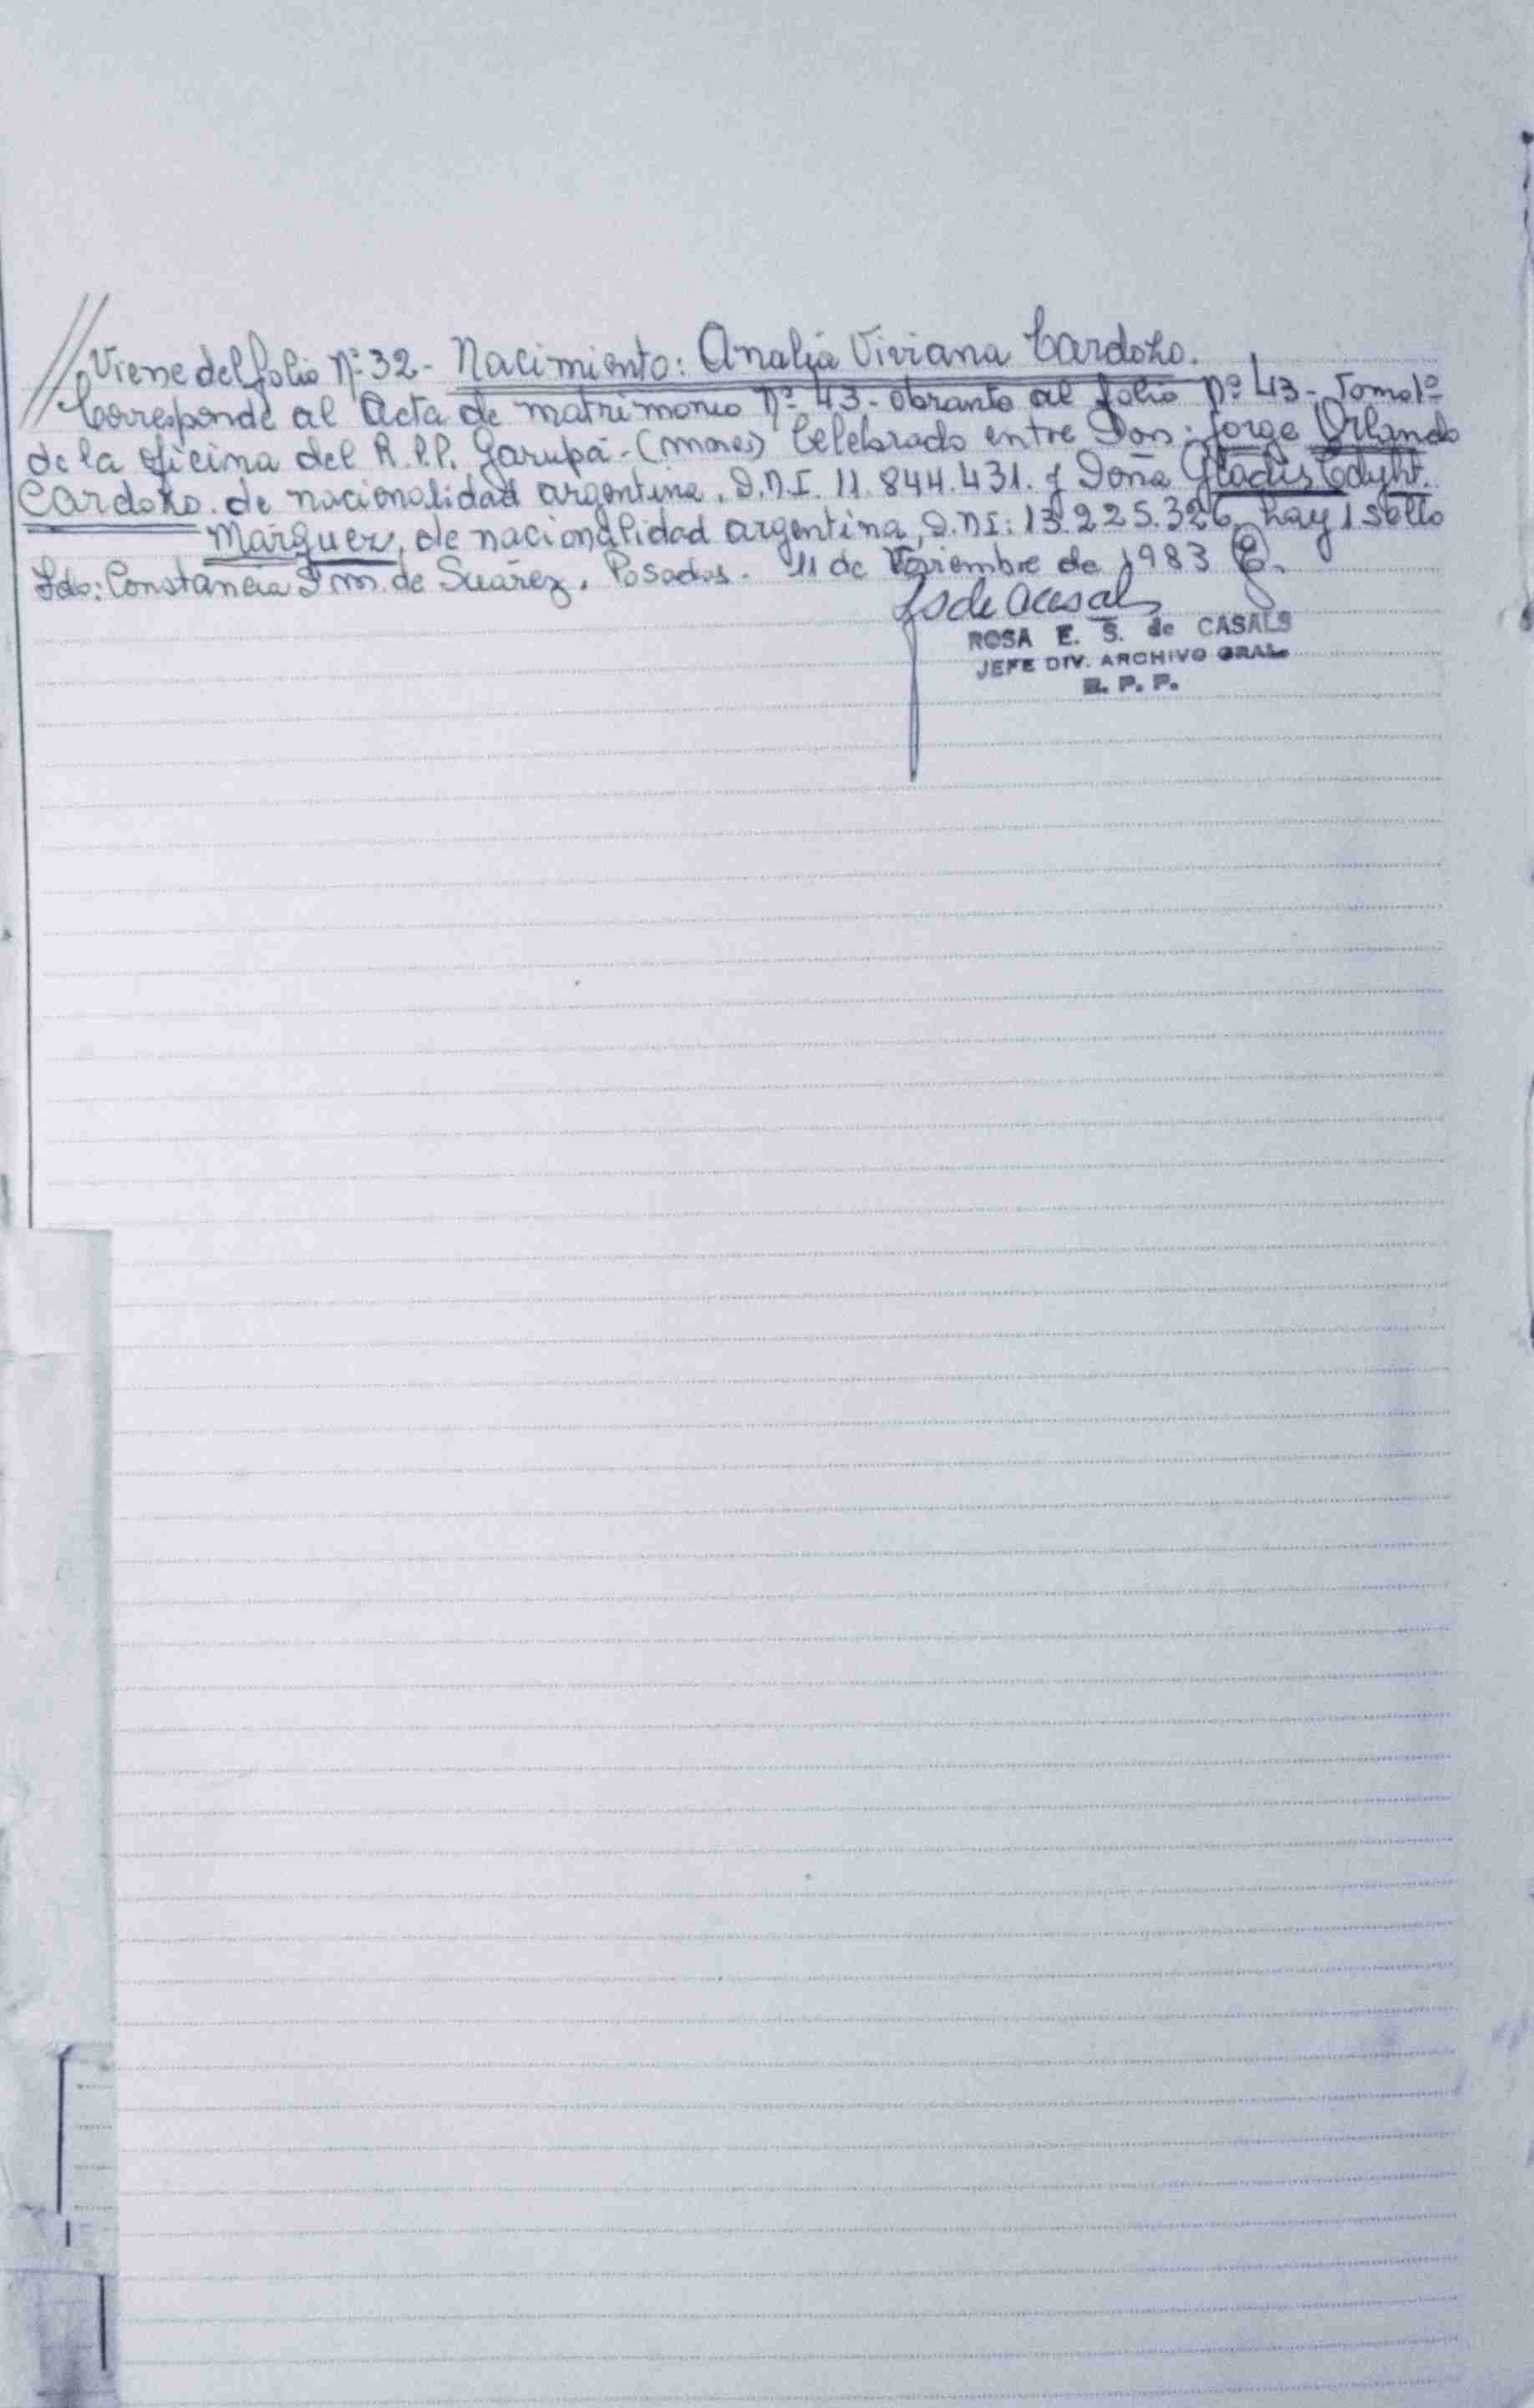 // Viene del folio Nº 32 - Nacimiento: Analía Viviana Cardozo.
Corresponde al Acta de matrimonio Nº 43 - obrante al folio Nº 43 - Tomo 1º
de la oficina del R.P.P. Garupá - (mnes) Celebrado entre Don: Jorge Orlando
Cardozo. de nacionalidad argentina, D.N.I. 11.844.431. y Doña Gladis Edyht.
Márquez, de nacionalidad argentina, D.N.I: 13.225.326. hay 1 sello
Fdo: Constancia de Suárez. Posadas. 11 de Noviembre de 1983
ROSA E. S. de CASALS
JEFE DIV. ARCHIVO GRAL.
R. P. P.